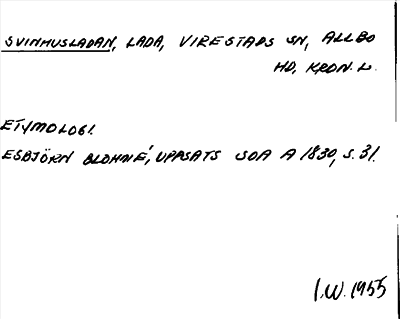 SVINHUSLADAN, LADA, VIRESTADS SN, ALLBO
HD, KRON. L.
ETYMOLOGI.
ESBJÖRN BLOHMÉ, UPPSATS SOA A 1830, S. 31.
I.W. 1955